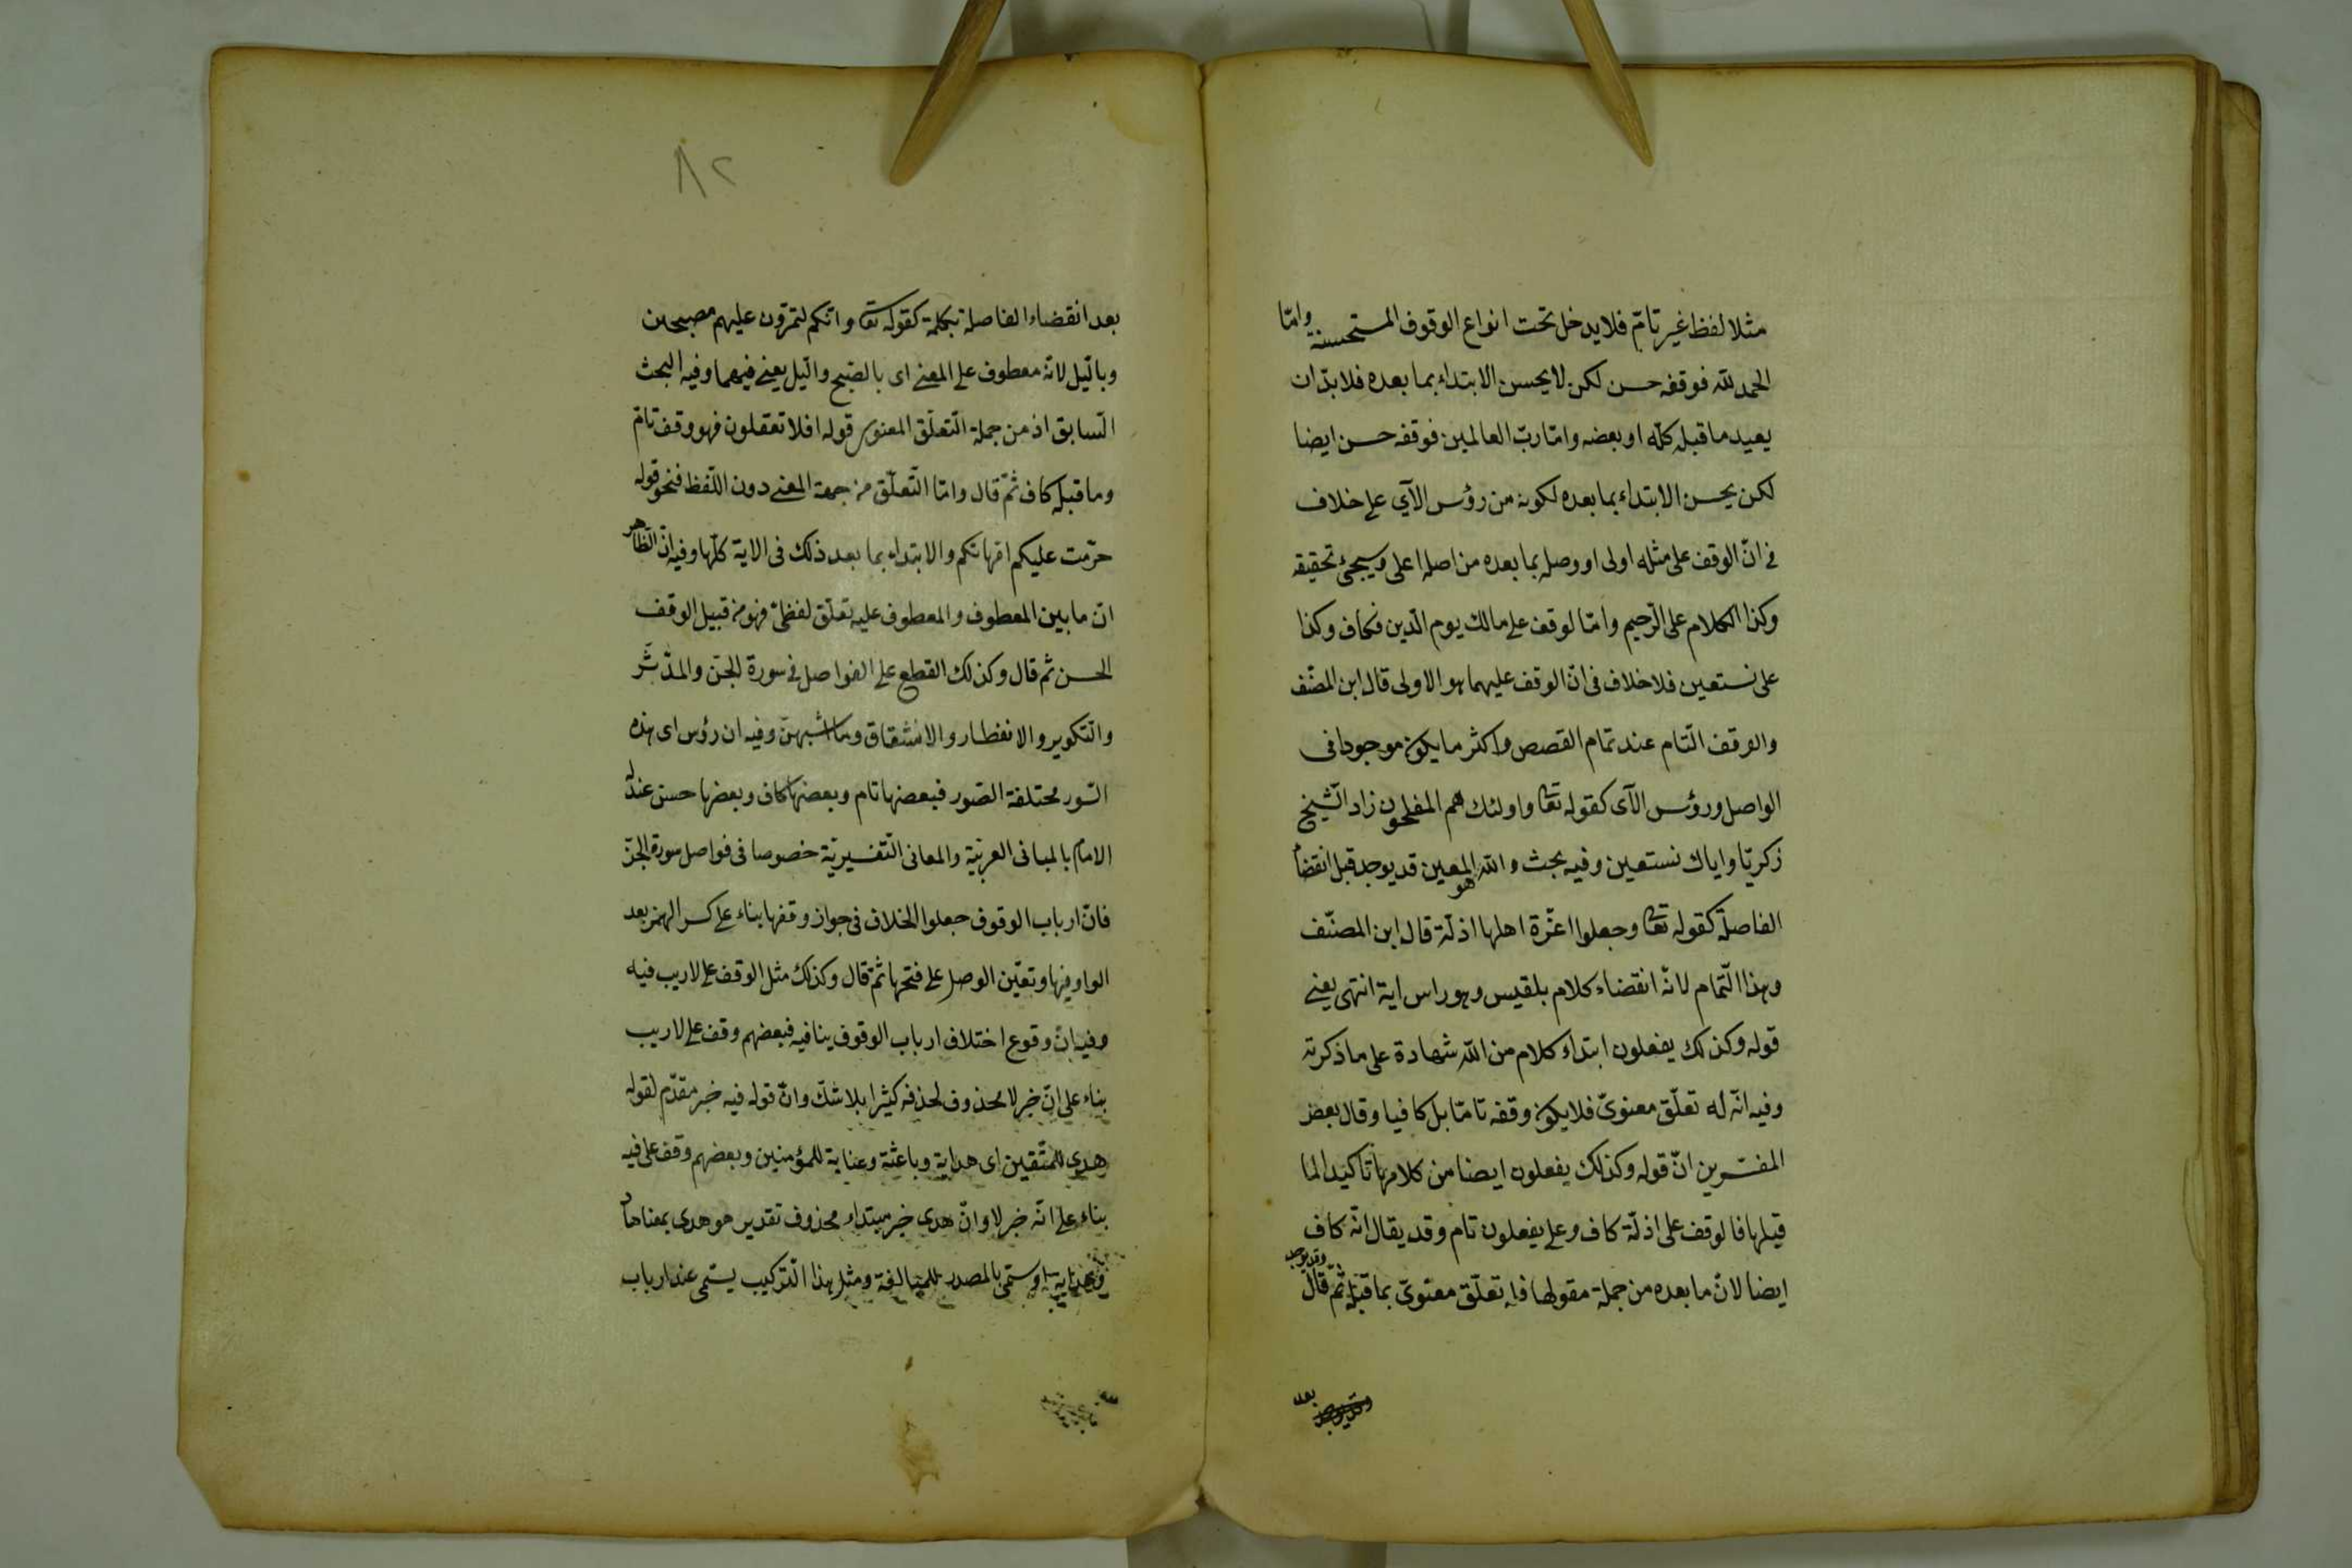 مثلا لفظ غير تامّ فلا يدخل تحت انواع الوقوف المستحسنة وامّا
الحمد لله فوقفه حسن لكن لا يحسن الابتداء بما بعده فلا بدّ ان
يعيد ما قبله كلّه او بعضه وامّا ربّ العالمين فوقفه حسن ايضا
لكن يحسن الابتداء بما بعده لكونه من رؤس الآي على خلاف
في انّ الوقف على مثله اولى او وصله بما بعده من اصله اعلى وسيجئ تحقيقه
وكذا الكلام على الرّحيم وامّا لوقف على مالك يوم الدّين فكاف وكذا
على نستعين فلا خلاف فى انّ الوقف عليهما هو الاولى قال ابن المصنّف
والوقف التّام عند تمام القصص واكثر ما يكون موجودا فى
الواصل ورؤس الآى كقوله تعا واولئك هم المفلحون زاد الشّيخ
زكريّا واياك نستعين وفيه بحث والله هو المعين قد يوجد قبل انقضاء
الفاصلة كقوله تعا وجعلوا اعزّة اهلها اذلّة قال ابن المصنّف
وهذا التّمام لانّه انقضاء كلام بلقيس وهو راس اية انتهى يعنى
قوله وكذلك يفعلون ابتداء كلام من الله شهادة على ما ذكرته
وفيه انّه له تعلّق معنوىّ فلا يكون وقفه تامّا بل كافيا وقال بعض
المفسّرين انّ قوله وكذلك يفعلون ايضا من كلامها تاكيدا لما
قبلها فالوقف على اذلّة كاف وعلى يفعلون تام وقد يقال انّه كاف
ايضا لانّ ما بعده من جملة مقولها فله تعلّق معنوىّ بما قبله ثمّ قال وقد يوجد
بعد
بعد انقضاء الفاصلة بكلمة كقوله تعا وانّكم لتمرّون عليهم مصبحين
وبالّيل لانّه معطوف على المعنى اى بالصّبح والّيل يعنى فيهما وفيه البحث
السّابق اذ من جملة التّعلّق المعنوى قوله افلا تعقلون فهو وقف تامّ
وما قبله كاف ثمّ قال وامّا التّعلّق من جهة المعنى دون اللّفظ فنحو قوله
حرّمت عليكم امّهاتكم والابتداء بما بعد ذلك فى الاية كلّها وفيه انّ الظّاهر
انّ ما بين المعطوف والمعطوف عليه تعلّق لفظىّ فهو من قبيل الوقف
الحسن ثم قال وكذلك القطع على الفواصل فى سورة الجنّ والمدّثّر
والتّكوير والانفطار والانشقاق وما اشبههنّ وفيه ان رؤس اى هذه
السّور مختلفة الصّور فبعضها تام وبعضها كاف وبعضها حسن عند
الامام بالمبانى العربيّة والمعانى التّفسيريّة خصوصا فى فواصل سورة الجنّ
فانّ ارباب الوقوف جعلوا الخلاف فى جواز وقفها بناء على كسر الهمز بعد
الواو فيها وتعيّن الوصل على فتحها ثمّ قال وكذلك مثل الوقف على لا ريب فيه
وفيه انّ وقوع اختلاف ارباب الوقوف ينافيه فبعضهم وقف على لا ريب
بناء على انّ خبر لا محذوف لحذفه كثيرا بلا شكّ وانّ قوله فيه خبر مقدّم لقوله
هدى للمتّقين اى هداية وباعثة وعناية للمؤمنين وبعضهم وقف على فيه
بناء على انّه خبر لا وانّ هدى خبر مبتداء محذوف تقدير هو هدى بمعنا هاد
وسمّى بالمصدر للمبالغة ومثل هذا التّركيب يسمّى عند ارباب